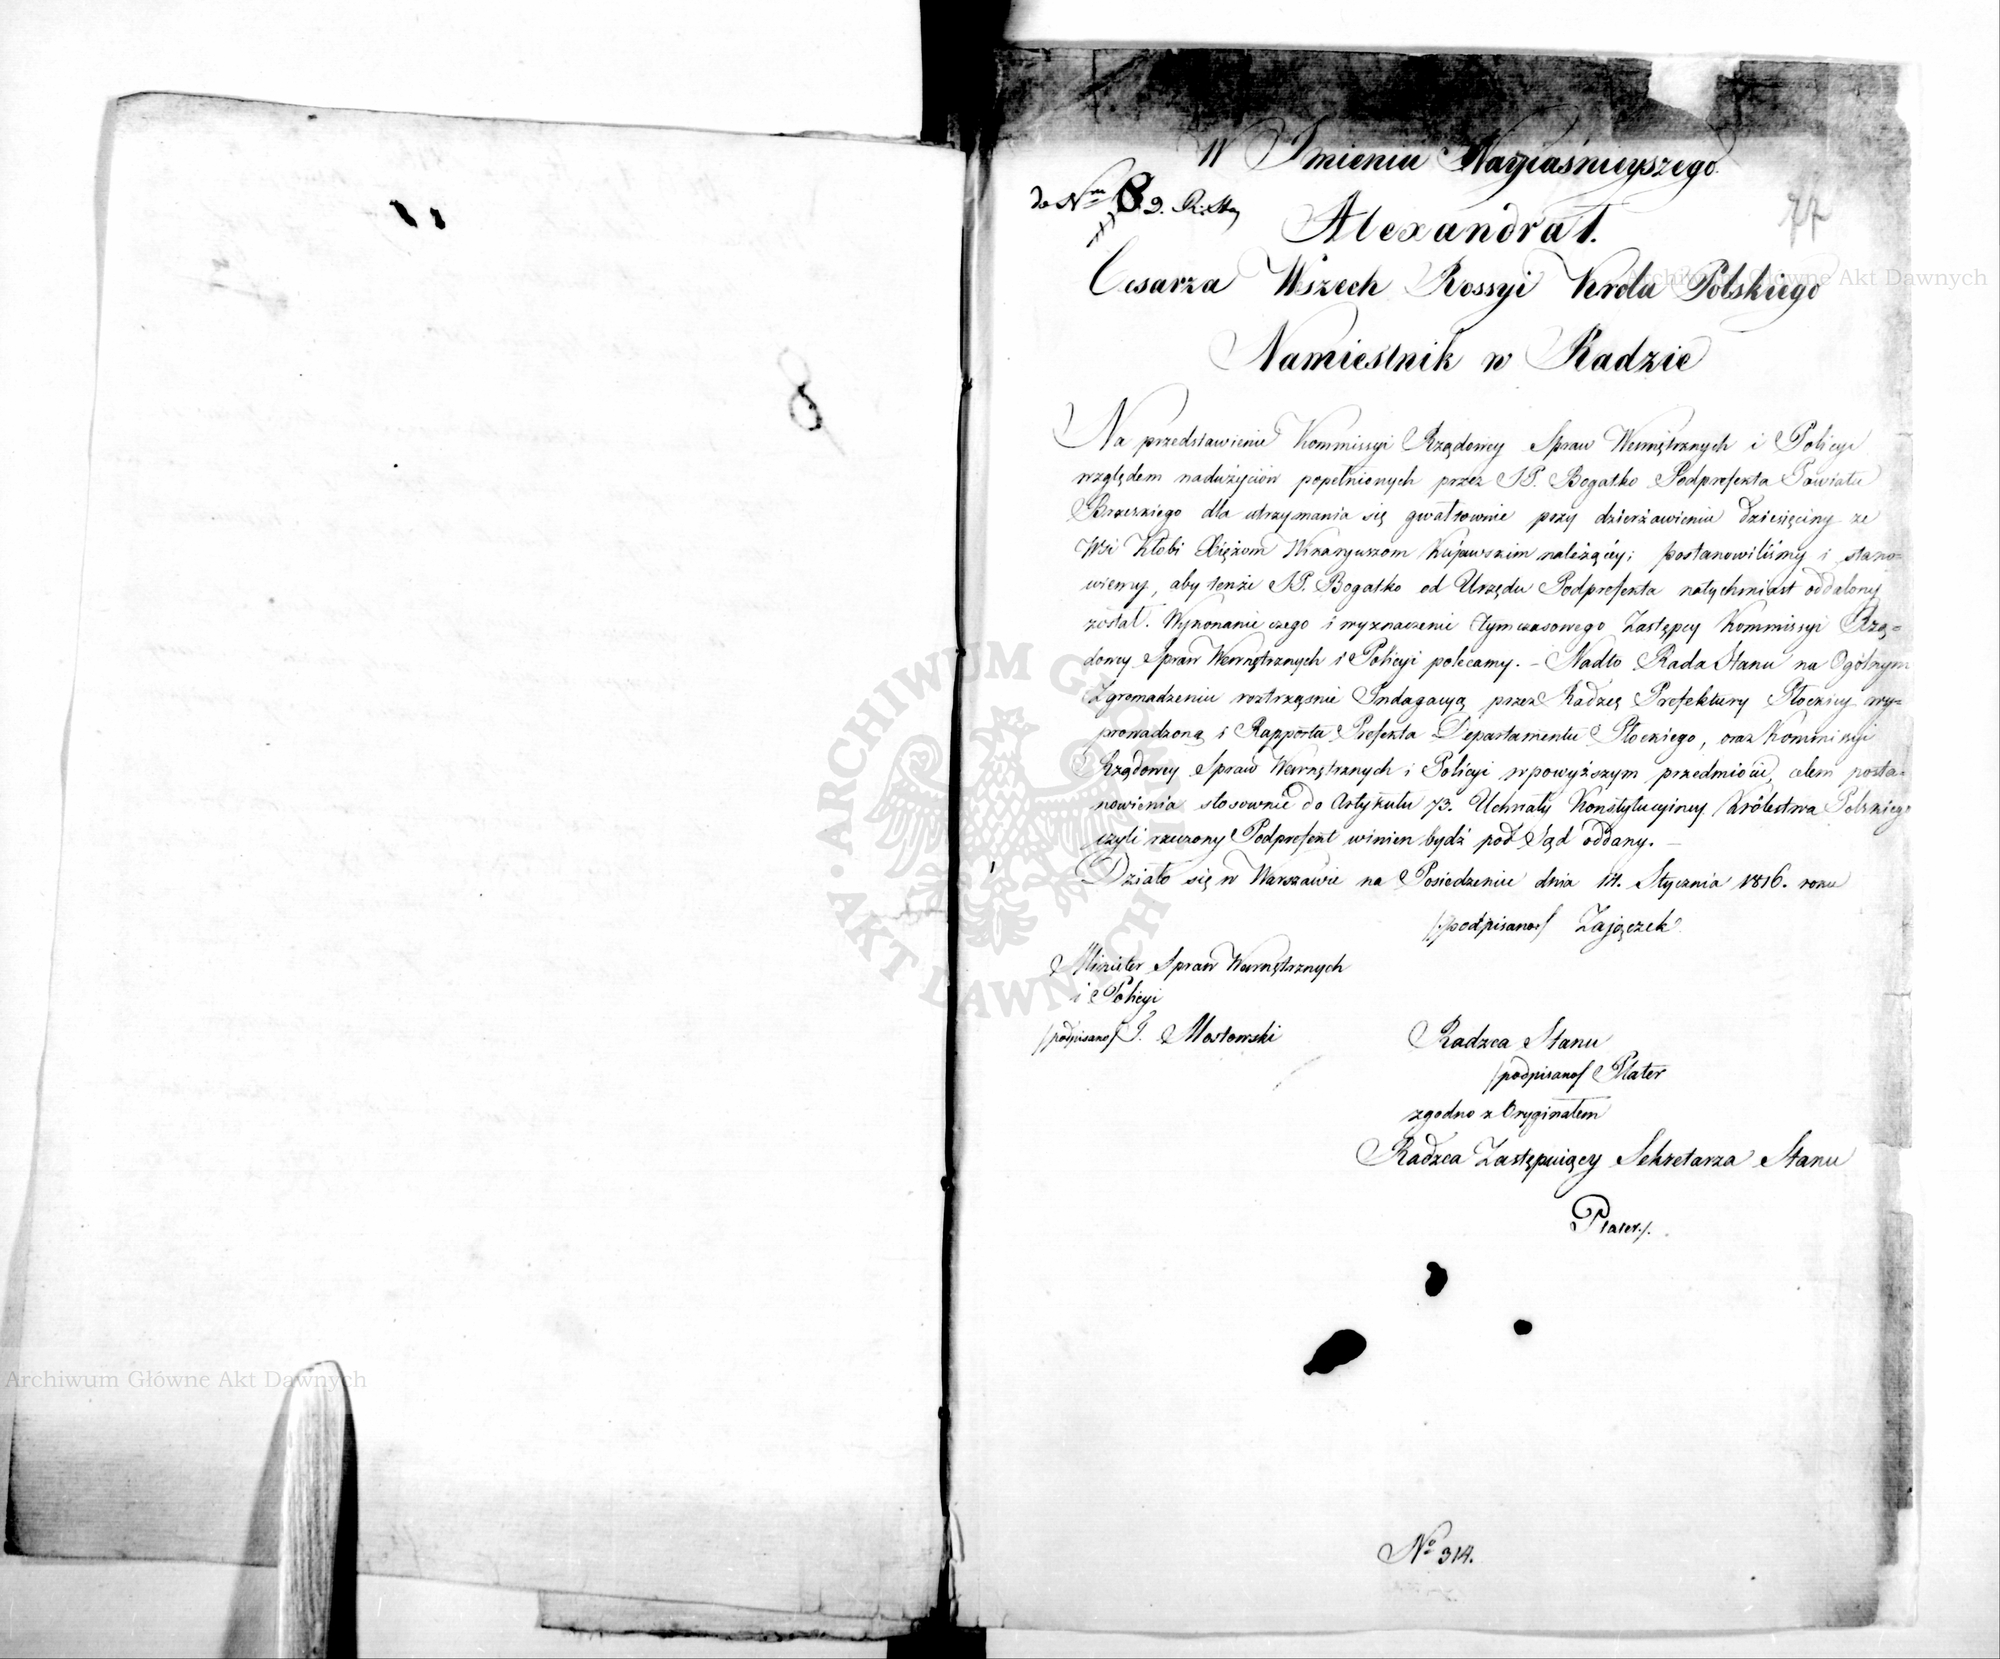 W Imieniu Nayiaśnieyszego
do Nru 89. R. Stu
77
Alexandra 1.
Cesarza Wszech Rossyi Króla Polskiego
Namiestnik w Radzie
Na przedstawienie Kommissyi Rządowey Spraw Wewnętrznych i Policyi
względem nadużyciów popełnionych przez JP. Bogatko Podprefekta Powiatu
Brzeskiego dla utrzymania się gwałtownie przy dzierżawieniu dziesięciny ze
Wsi Kłobi Xiężom Wikaryuszom Kujawskim należącéy; postanowiliśmy i stano=
wiemy, aby tenże JP. Bogatko od Urzędu Podprefekta natychmiast oddalony
został. Wykonanie czego i wyznaczenie tymczasowego Zastępcy Kommissyi Rzą=
dowey Spraw Wewnętrznych i Policyi polecamy. – Nadto Rada Stanu na Ogólnym
Zgromadzeniu roztrząśnie Indagacyą przez Radzcę Prefektury Płockiey wy=
prowadzoną i Rapporta Prefekta Departamentu Płockiego, oraz Kommissyi
Rządowey Spraw Wewnętrznych i Policyi w powyższym przedmiocie, celem posta=
nowienia stosownie do Artykułu 73. Uchwały Konstytucyiney Królestwa Polskiego
czyli rzeczony Podprefekt winien bydź pod Sąd oddany. –
Działo się w Warszawie na Posiedzeniu dnia 14. Stycznia 1816. roku
/podpisano/ Zajączek
Minister Spraw Wewnętrznych
i Policyi
/podpisano/ T. Mostowski
Radzca Stanu
/podpisano/ Plater
zgodno z Oryginałem
Radzca Zastępuiący Sekretarza Stanu
Plater./.
No 314.
8
Archiwum Główne Akt Dawnych
Archiwum Główne Akt Dawnych
ARCHIWUM GŁÓWNE AKT DAWNYCH